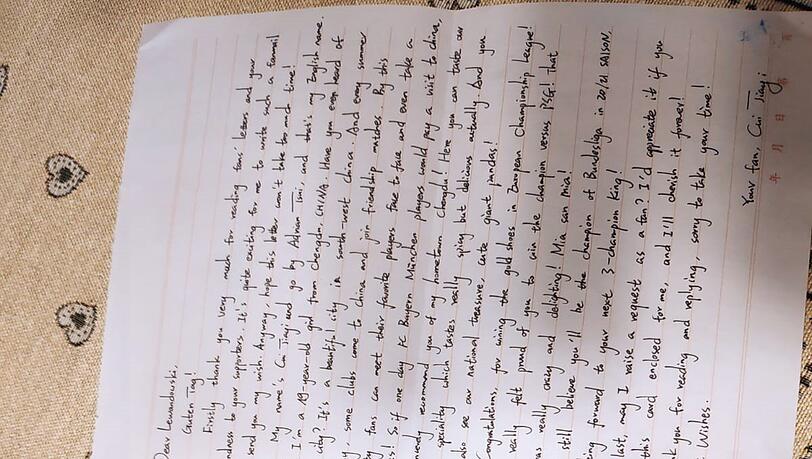 Dear Lewandowski,
Guten Tag!
Firstly thank you very much for reading fans' letters and your
ndness to your supporters. It's quite exciting for me to write such a fanmail
send you my wish. Anyway, hope this letter won't take too much time!
My name's Cui Jingyi and go by Adnan Tsui, and that's my English name.
I'm a 19-year-old girl from Chengdu, CHINA. Have you ever heard of
city? It's a beautiful city in south-west china. And every summer
y, some clubs come to China and join friendship matches. By this
y fans can meet their favorite players face to face and even take a
s! So if one day FC Bayern München players would pay a visit to china,
recommend you of my hometown Chengdu! Here you can taste our
speciality which tastes really spicy but delicious actually. And you
also see our national treasure, cute giant pandas!
Congratulations for wining the gold shoes in European Championship League!
really felt proud of you to win the champion versus PSG! That
was really crazy and delighting! Mia san Mia!
still believe you'll be the champion of Bundesliga in 20/21 SAISON.
ing forward to your next 3-champion King!
last, may I raise a request as a fan? I'd appreciate it if you
this card enclosed for me, and I'll cherish it forever!
k you for reading and replying, sorry to take your time!
Wishes.
Your fan, Cui Jingyi
年 月 日